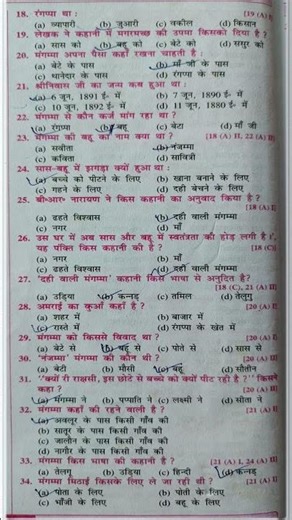 18. रंगप्पा था : [19 (A) I]
(a) व्यापारी (b) जुआरी (c) वकील (d) किसान
19. लेखक ने कहानी में मगरमच्छ की उपमा किसको दिया है ?
(a) सास को (b) बहू को (c) बेटे को (d) ससुर को
20. मंगम्मा अपना पैसा कहाँ रखना चाहती है :
(a) बेटे के पास (b) माँ जी के पास
(c) थानेदार के पास (d) रंगप्पा के पास
21. श्रीनिवास जी का जन्म कब हुआ था :
(a) 6 जून, 1891 ई० में (b) 7 जून, 1890 ई० में
(c) 10 जून, 1892 ई० में (d) 11 जून, 1880 ई० में
22. मंगम्मा से कौन कर्ज मांग रहा था ?
(a) रंगप्पा (b) बहू (c) बेटा (d) माँ जी
23. मंगम्मा की बहू का नाम क्या था ? [18 (A) II, 22 (A) II]
(a) सबीता (b) नंजम्मा
(c) कविता (d) सावित्री
24. सास-बहू में झगड़ा क्यों हुआ था :
(a) बच्चे को पीटने के लिए (b) खाना बनाने के लिए
(c) गहने के लिए (d) दही बेचने के लिए
25. बी०आर० नारायण ने किस कहानी का अनुवाद किया है ? [18 (A) I]
(a) ढहते विश्वास (b) दही वाली मंगम्मा
(c) नगर (d) माँ
26. 'उस घर में अब सास और बहू में स्वतंत्रता की होड़ लगी है।', यह पंक्ति किस कहानी की है ? [18 (C)]
(a) नगर (b) माँ
(c) ढहते विश्वास (d) दही वाली मंगम्मा
27. 'दही वाली मंगम्मा' कहानी किस भाषा से अनूदित है? [18 (C), 21 (A) II]
(a) उड़िया (b) कन्नड़ (c) तमिल (d) तेलुगु
28. अमराई का कुआँ कहाँ है ? [20 (A) I]
(a) शहर में (b) बाजार में
(c) रास्ते में (d) रंगप्पा के खेत में
29. मंगम्मा को किससे विवाद था ? [20 (A) I]
(a) बेटे से (b) बहू से (c) पोते से (d) सास से
30. 'नंजम्मा' मंगम्मा की कौन थी ? [20 (A) II]
(a) बेटी (b) मौसी (c) बहू (d) सौतीन
31. ''क्यों री राक्षसी, इस छोटे से बच्चे को क्यों पीट रही है ?'' किसने कहा ? [20 (A) II]
(a) मंगम्मा ने (b) पप्पाति ने (c) लक्ष्मी ने (d) सीता ने
32. मंगम्मा कहाँ की रहने वाली है ? [21 (A) I]
(a) अवलूर के पास किसी गाँव की
(b) सातूर के पास किसी गाँव की
(c) जालौन के पास किसी गाँव की
(d) नागौर के पास किसी गाँव की
33. मंगम्मा किस भाषा की कहानी है ? [21 (A) I, 24 (A) II]
(a) तेलगु (b) उड़िया (c) हिन्दी (d) कन्नड़
34. मंगम्मा मिठाई किसके लिए ले जा रही थी ? [21 (A) II]
(a) पोता के लिए (b) पोती के लिए
(c) भाँजी के लिए (d) बहू के लिए